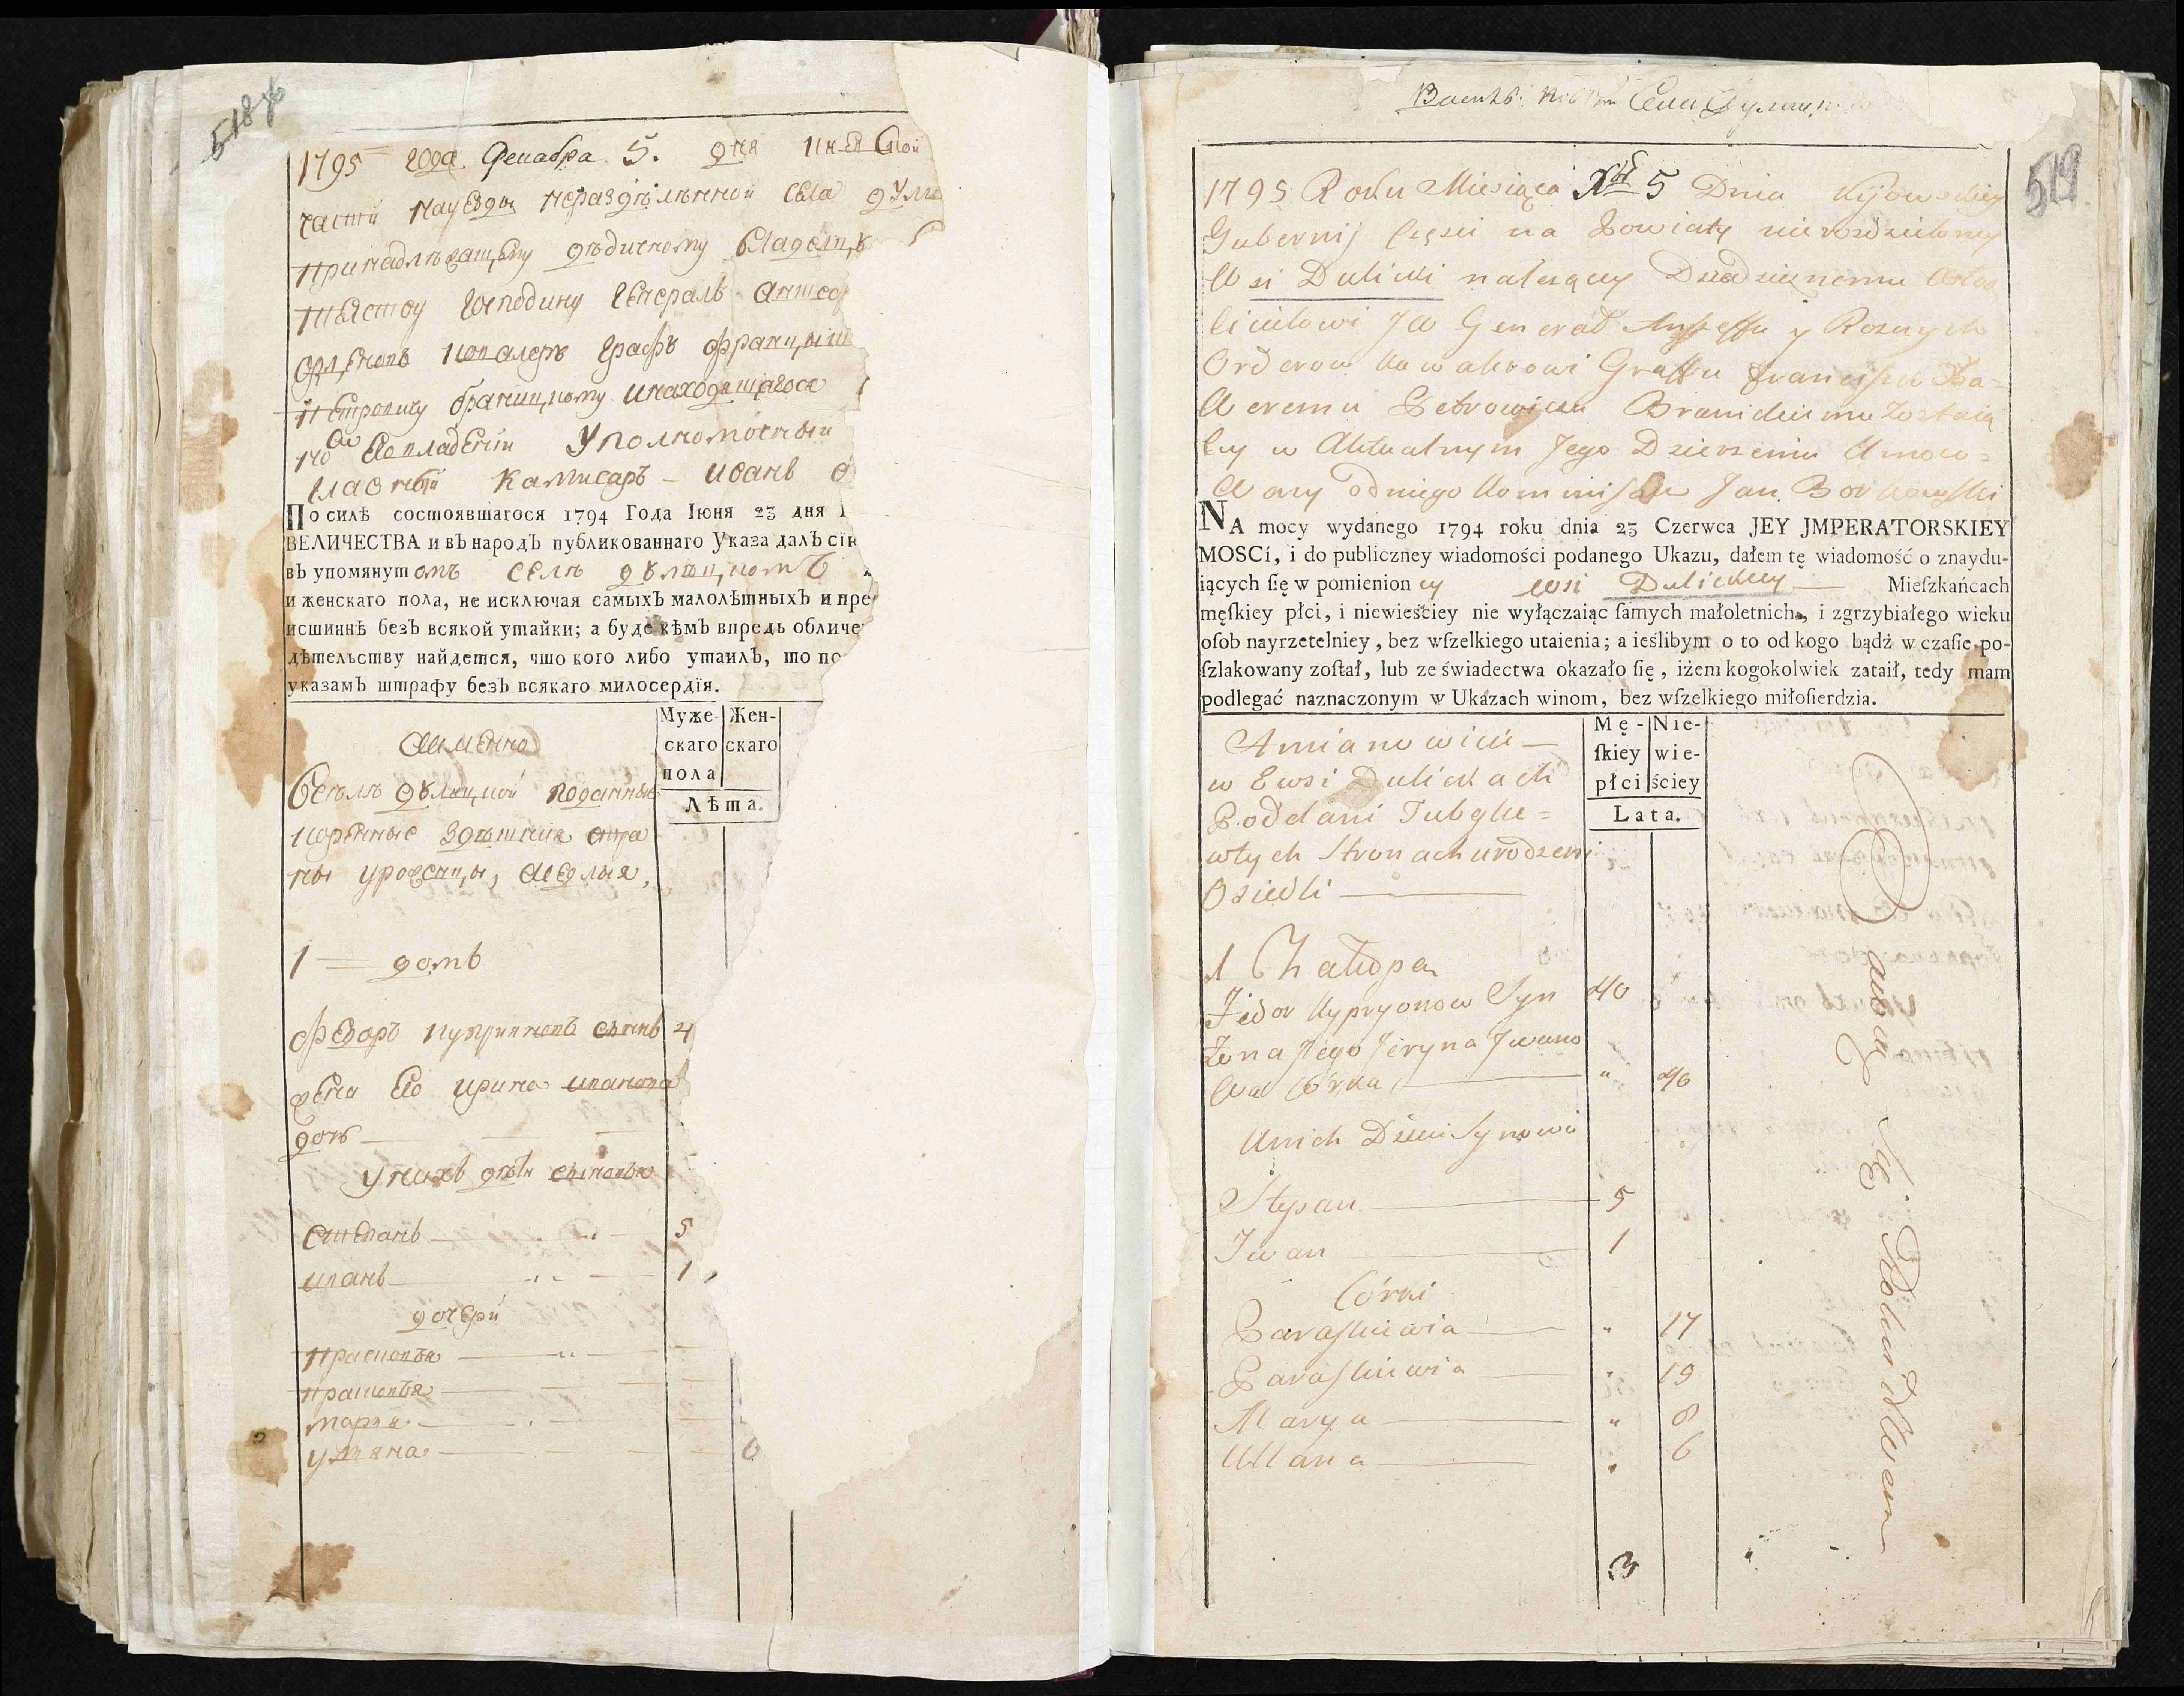 518 об
1795 года Декабра 5. дня Киевской
части науезды нераздѣленной села дул
принадлежащему дѣдичному владелц
господину Генералъ Аншеф
Орденовъ кавалеръ Графъ Францыш
Петровичу браницкому и находящагося
во владении Уполномочный
Комисаръ - Иоанъ
По силѣ состоявшагося 1794 Года Іюня 23 дня
ВЕЛИЧЕСТВА и въ народъ публикованнаго Указа далъ сїю
въ упомянутомъ селѣ дулицкомъ
и женскаго пола, не исключая самыхъ малолѣтныхъ и пре
истиннѣ безъ всякой утайки; а буде кѣмъ впредь обличе
дѣтельству найдется, что кого либо утаилъ, то по
указамъ штрафу безъ всякаго милосердїя.
Муже- скаго пола
Жен- скаго
Лѣта.
Аименно
Всѣлѣ дулицкой подданные
корѣнные здѣшния стра
ны уроженцы, аседлыя,
1 домъ
Федоръ куприяновъ сынъ 4
жена Его ирина иванова
дочь
У нихъ дѣти сыновья
Степанъ 5
иванъ 1
дочери
прасковья
прасковья
марья
ульяна
519
1795 Roku Miesiąca Xbr 5 Dnia Kijowskiey
Gubernij Części na Powiaty nierozdzieloney
Wsi Dulicki należącey Dziedzicznemu Wła
scicielowi JW General Anszeffu y Roznych
Orderow Kawalerowi Graffu Franciszku Xa=
Weremu Petrowiczu Branickiemu Zostaią
Cey w Aktualnym Jego Dzierzeniu Umoco=
Wany od niego Kommisarz Jan Borkowski
NA mocy wydanego 1794 roku dnia 23 Czerwca JEY JMPERATORSKIEY
MOSCi, i do publiczney wiadomości podanego Ukazu, dałem tę wiadomość o znaydu-
iących ſię w pomienioney wsi Dulickiey Mieſzkańcach
męſkiey płci, i niewieściey nie wyłączaiąc ſamych małoletnich, i zgrzybiałego wieku
oſob nayrzetelniey, bez wſzelkiego utaienia; a ieślibym o to od kogo bądź w czaſie po-
ſzlakowany zoſtał, lub ze świadectwa okazało ſię, iżem kogokolwiek zataił, tedy mam
podlegać naznaczonym w Ukazach winom, bez wſzelkiego miłoſierdzia.
Mę- ſkiey płci
Nie- wie- ściey
Lata.
Amianowicie
w Ewsi Dulickach
Poddani Tubylce=
w tych Stronach urodzeni
Osiedli
1 Chałupa
Fidor Kypryonow Syn 40
Zona Jego Jeryna Jwano
Wa Córka " 40
U nich Dzieci Synowie
Stepan 5
Jwan 1
Córki
Paraskiewia " 17
Paraskiewia " 15
Marya " 8
Ullana " 6
3